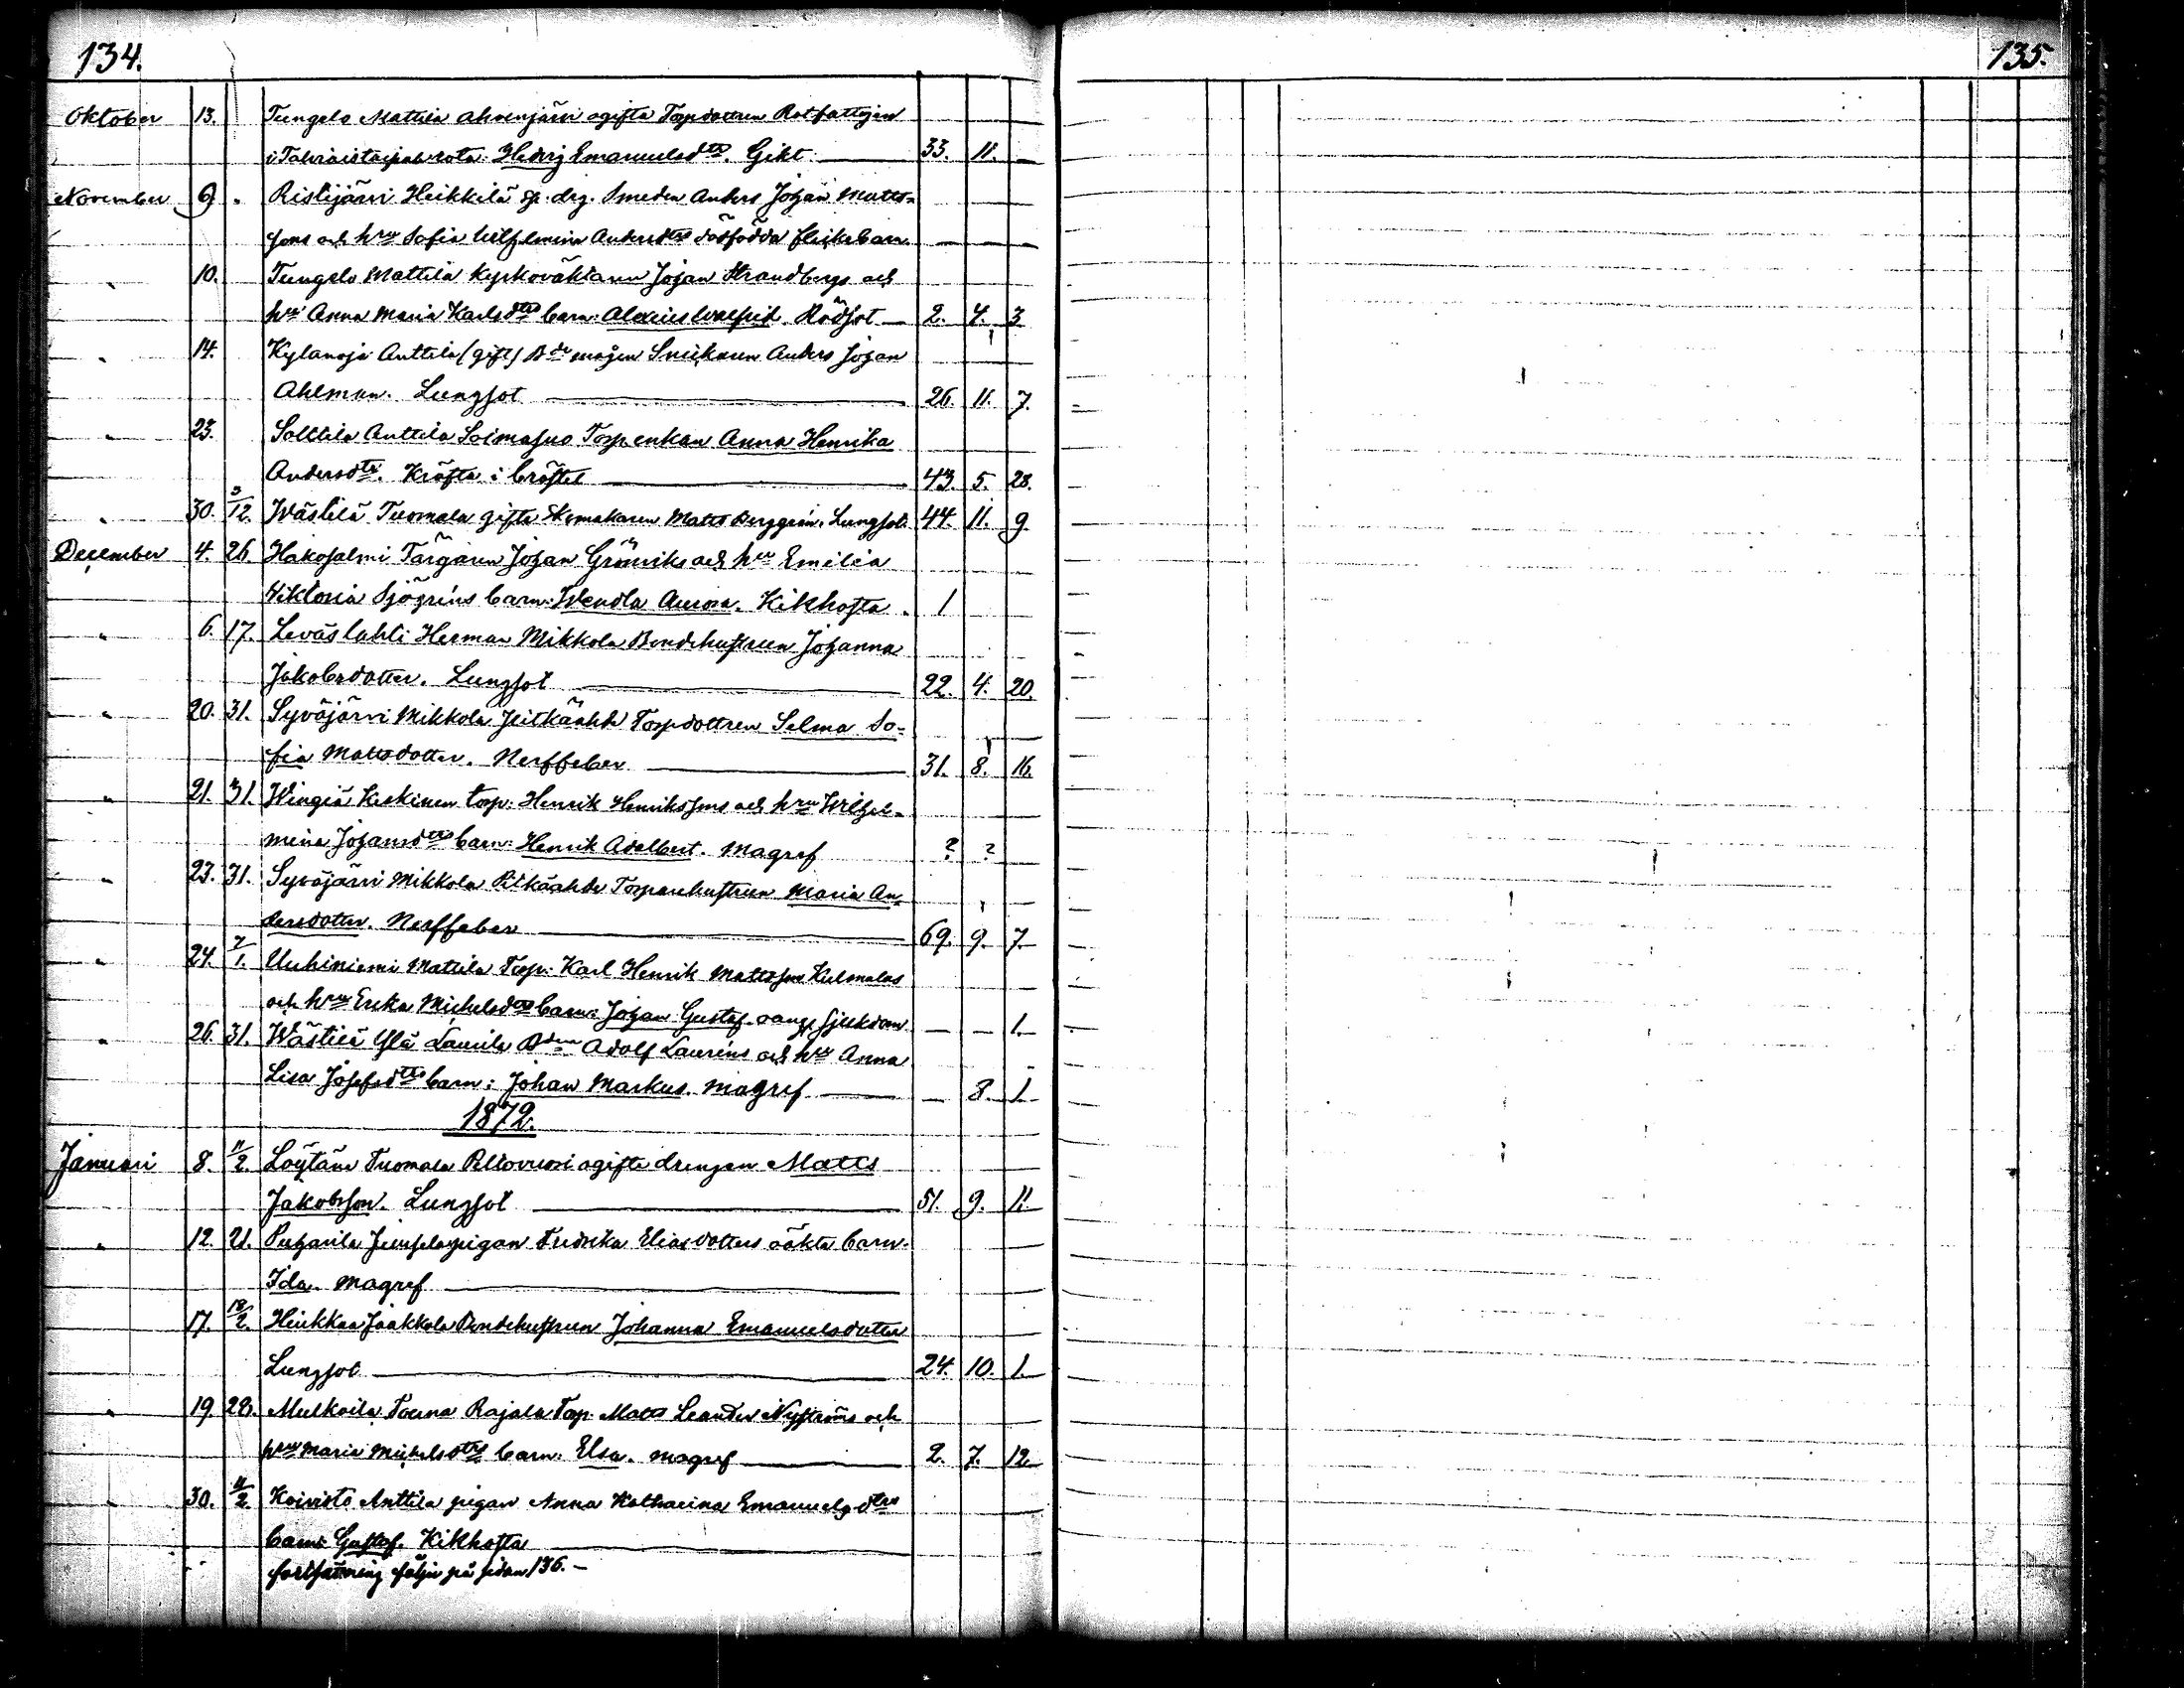 134.
135.
Oktober 13. Tungelo Mattila Ahvenjärvi ogifta Torpdottren Rotfattigen
rota: Hedvig Emanuelsdtr. Gikt 33. 11. —
November 9 " Ristijärvi Heikkilä Sp. drg. Smeden Anders Johan Matts-
sons och hru Sofia Wilhelmina Andersdtrs dödfödda flickebarn. — — —
" 10. Tungelo Mattila Kyrkoväktaren Johan Strandbergs och
hru Anna Maria Karlsdtrs barn: Rödsot — 2. 4. 3
" 14. Kylänoja Anttila (gift) Bde mågen Snickaren Anders Johan
Ahlman. Lungsot 26. 11. 7.
" 23. Solttila Anttila Soimasuo Torp.enkan Anna Henrika
Andersdtr. Kräfta i bröstet 43. 5. 28.
" 30. 3/12. Wästilä Tuomala gifte Skomakaren Matts Berggren. Lungsot. 44. 11. 9
December 4. 26. Hakosalmi Färgaren Johan Grönriks och hru Emilia
Viktoria Sjögrens barn: Wendla Aurora. Kikhosta. 1
" 6. 17. Leväslahti Herman Mikkola Bondehustrun Johanna
Jakobsdotter. Lungsot 22. 4. 20.
" 20. 31. Syväjärvi Mikkola Torpdottren Selma So-
fia Mattsdotter. Nerffeber 31. 8. 16.
" 21. 31. Wingiä Keskinen torp: Henrik Henrikssons och hru Wilhel-
mina Johansdtrs barn: Henrik Adelbert. Magref ? ?
" 23. 31. Syväjärvi Mikkola Torparehustrun Maria An-
dersdotter. Nerffeber 69. 9. 7.
" 24. 7/1. Uuhiniemi Mattila Torp: Karl Henrik Mattsson Kulmalas
och hru Erika Michelsdtrs barn: Johan Gustaf. sjukdom — — 1.
" 26. 31. Wästilä Ylä Laurila Bden Adolf Laurens och hru Anna
Lisa Josefsdtrs barn: Johan Markus. Magref — 8. 1.
1872.
Januari 8. 11/2. Löytäne Tuomala Peltovuori ogifte drengen Matts
Jakobsson. Lungsot 51. 9. 11.
" 12. 21. Puharila Junselapigan Fredrika Eliasdotters oäkta barn.
Ida. Magref
17. 18/2. Heikkaa Jaakkola Bondehustrun Johanna Emanuelsdotter
Lungsot 24. 10. 1.
" 19. 28. Mulkoila Touna Rajala Torp. Matts Leander Nyströms och
hru Maria Michelsdtrs barn: Elsa. Magref 2. 7. 12.
" 30. 11/2 Koivisto Anttila pigan Anna Katharina Emanuelsdtrs
barn: Gustaf. Kikhosta
fortsättning följer på sidan 136. —